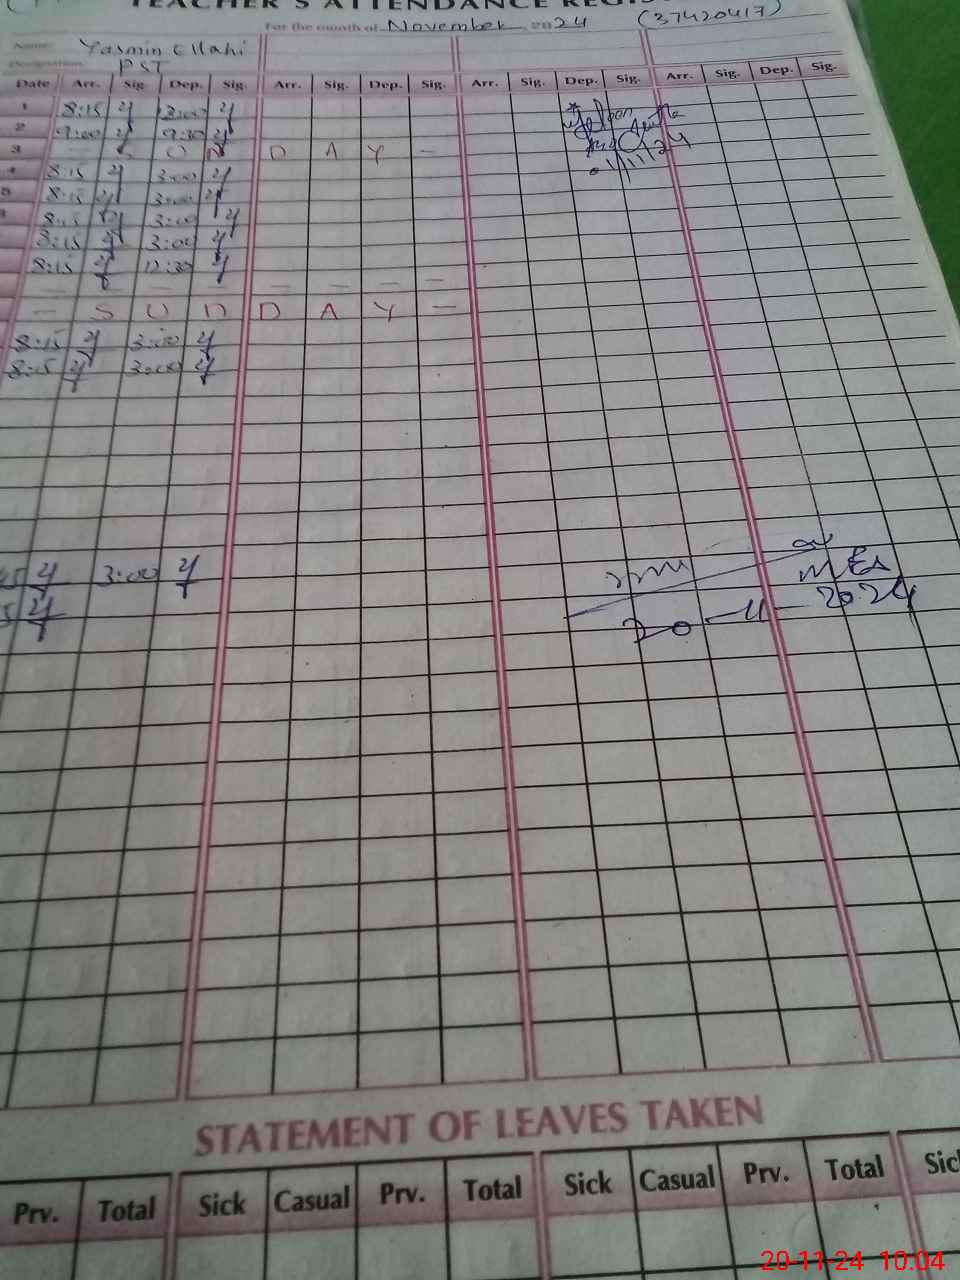 TEACHER'S ATTENDANCE
For the month of November, 2024 (37420417)
Name: Yasmin Ellahi
Designation: PST
Date Arr. Sig. Dep. Sig. Arr. Sig. Dep. Sig. Arr. Sig. Dep. Sig. Arr. Sig. Dep. Sig.
1 8:15 y 3:00 y
2 9:00 y 9:30 y
3 S U N D A Y -
4 8:15 y 3:00 y
5 8:15 y 3:00 y
8:15 y 3:00 y
8:15 y 3:00 y
8:15 y 12:30 y
- - - - - - - -
- S U N D A Y -
8:15 y 3:00 y
8:15 y 3:00 y
y 3:00 y
y
01/11/24
MEA
20-11-2024
STATEMENT OF LEAVES TAKEN
Prv. Total Sick Casual Prv. Total Sick Casual Prv. Total Sic
20-11-24 10:04